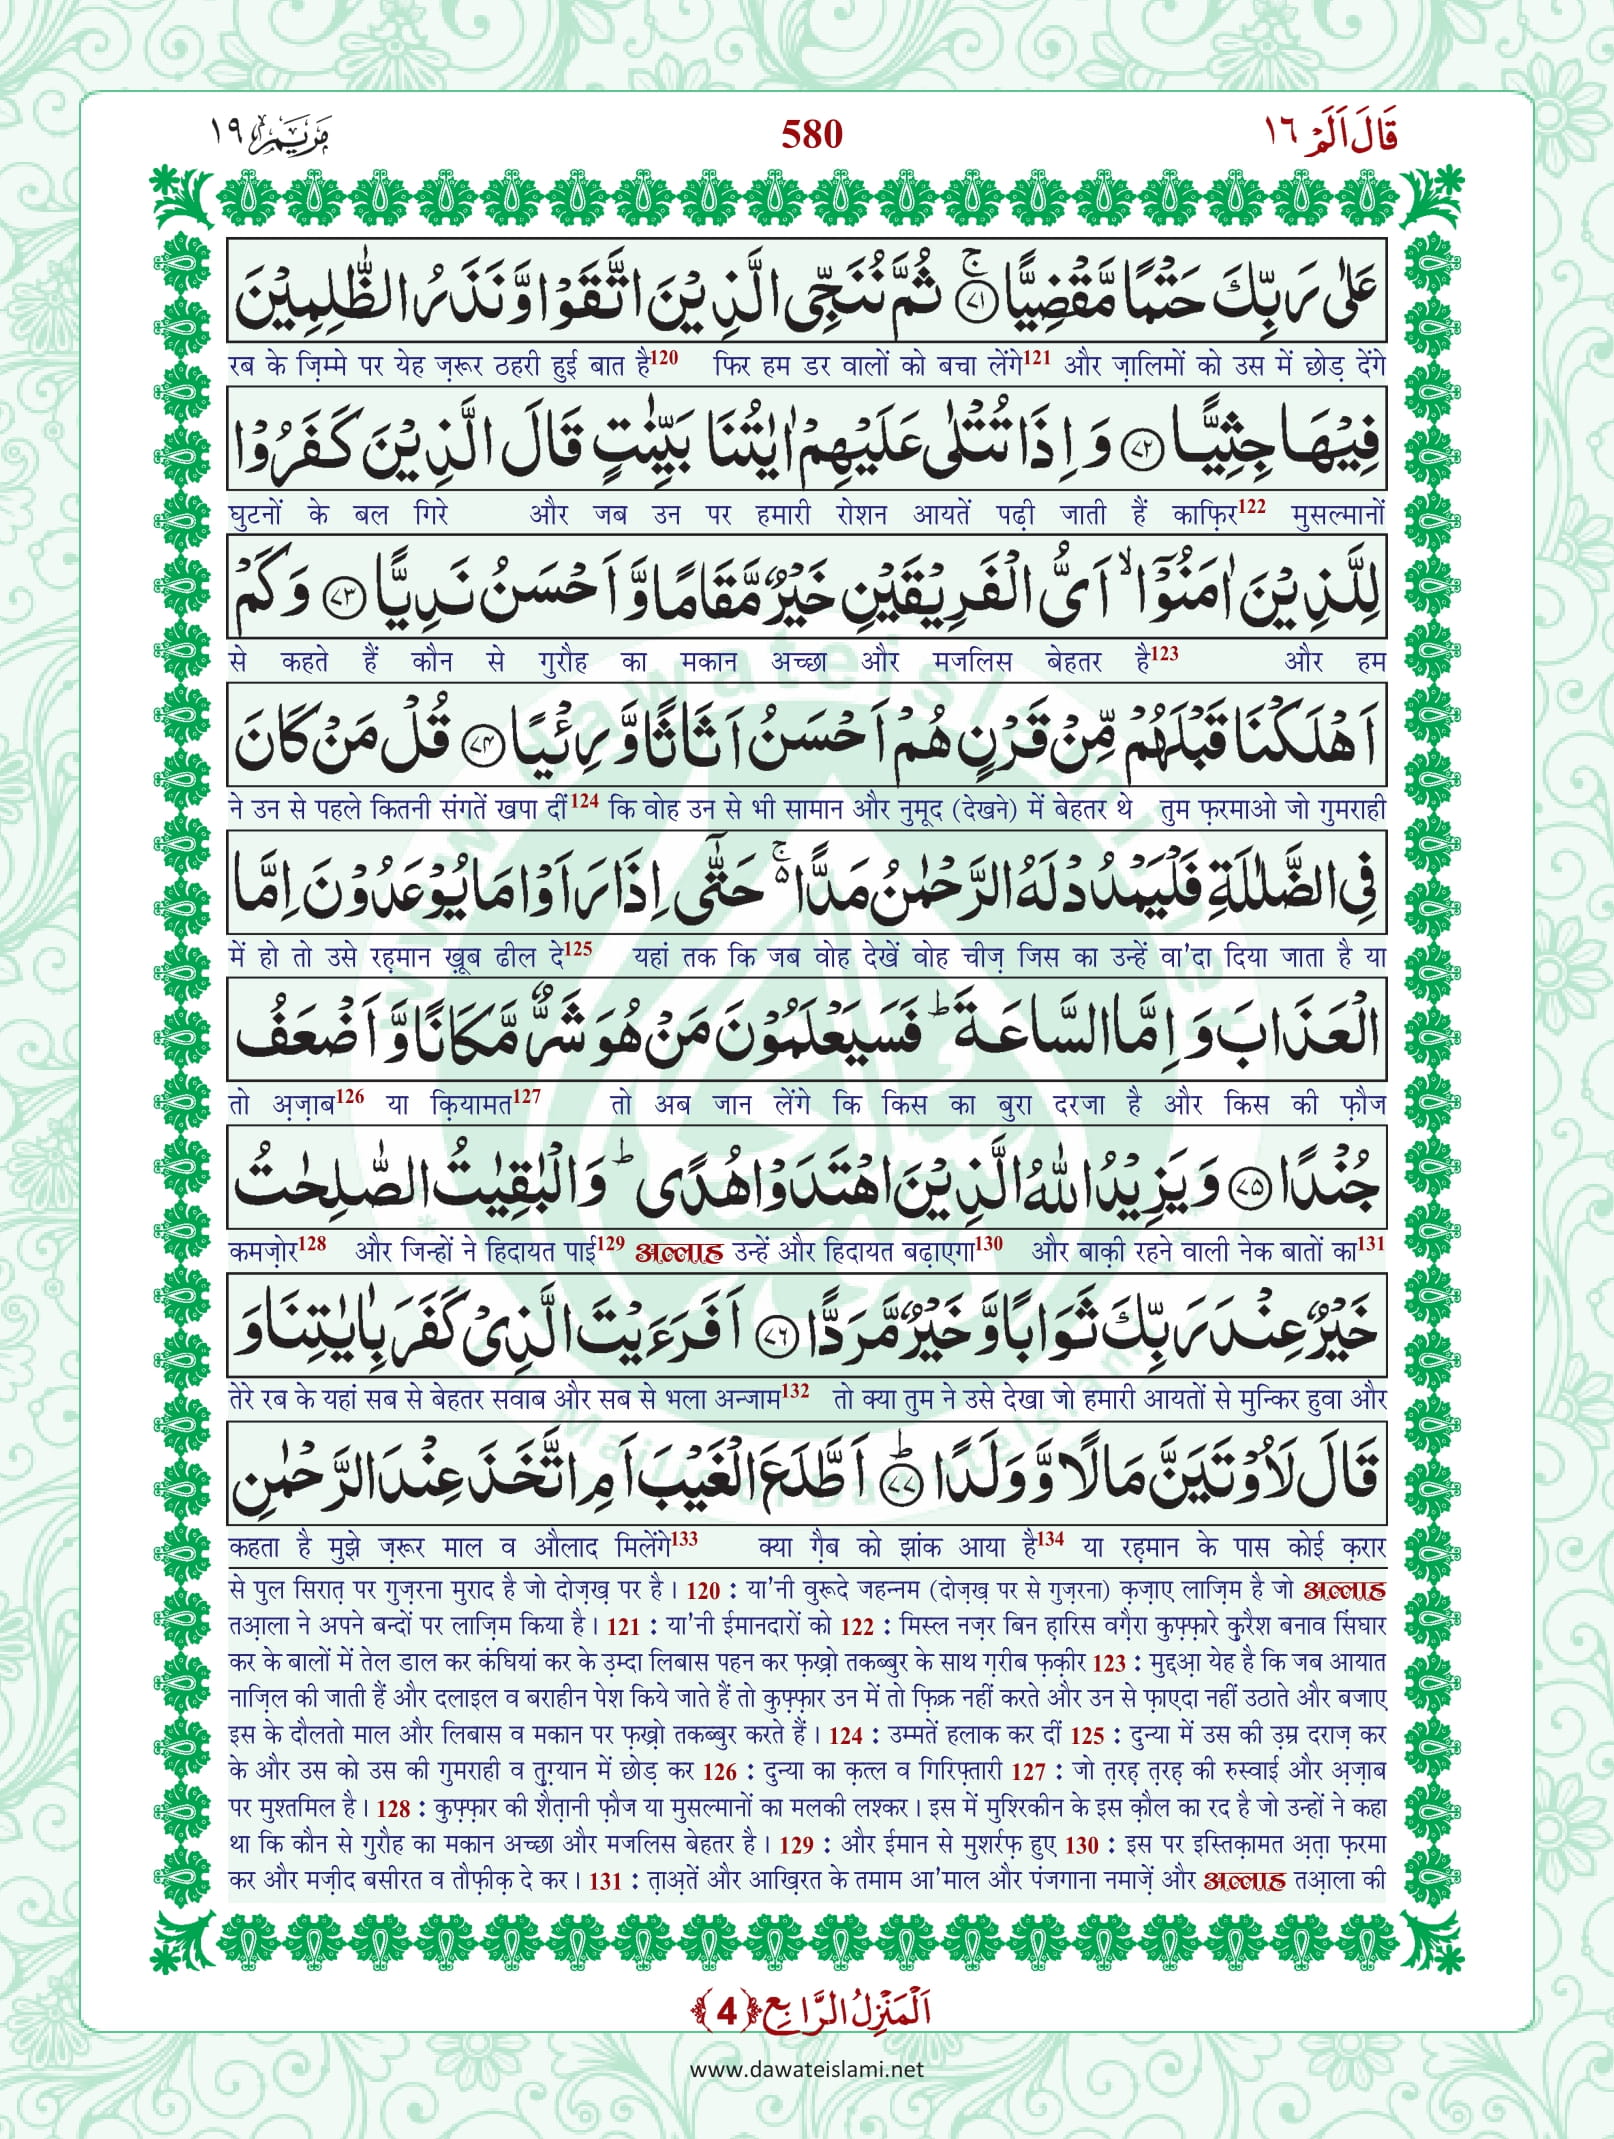 مَرْيَم ١٩ 580 قَالَ اَلَمْ ١٦
عَلٰى رَبِّكَ حَتْمًا مَّقْضِیًّاۚ۝۷۱ ثُمَّ نُنَجِّی الَّذِیْنَ اتَّقَوْا وَّ نَذَرُ الظّٰلِمِیْنَ
रब के ज़िम्मे पर येह ज़रूर ठहरी हुई बात है120 फिर हम डर वालों को बचा लेंगे121 और ज़ालिमों को उस में छोड़ देंगे
فِیْهَا جِثِیًّا۝۷۲ وَ اِذَا تُتْلٰى عَلَیْهِمْ اٰیٰتُنَا بَیِّنٰتٍ قَالَ الَّذِیْنَ كَفَرُوْا
घुटनों के बल गिरे और जब उन पर हमारी रोशन आयतें पढ़ी जाती हैं काफ़िर122 मुसल्मानों
لِلَّذِیْنَ اٰمَنُوْۤاۙ اَیُّ الْفَرِیْقَیْنِ خَیْرٌ مَّقَامًا وَّ اَحْسَنُ نَدِیًّا۝۷۳ وَ كَمْ
से कहते हैं कौन से गुरौह का मकान अच्छा और मजलिस बेहतर है123 और हम
اَهْلَكْنَا قَبْلَهُمْ مِّنْ قَرْنٍ هُمْ اَحْسَنُ اَثَاثًا وَّ رِءْیًا۝۷۴ قُلْ مَنْ كَانَ
ने उन से पहले कितनी संगतें खपा दीं124 कि वोह उन से भी सामान और नुमूद (देखने) में बेहतर थे तुम फ़रमाओ जो गुमराही
فِی الضَّلٰلَةِ فَلْیَمْدُدْ لَهُ الرَّحْمٰنُ مَدًّا۬ۚ حَتّٰۤى اِذَا رَاَوْا مَا یُوْعَدُوْنَ اِمَّا
में हो तो उसे रह़मान ख़ूब ढील दे125 यहां तक कि जब वोह देखें वोह चीज़ जिस का उन्हें वा'दा दिया जाता है या
الْعَذَابَ وَ اِمَّا السَّاعَةَؕ فَسَیَعْلَمُوْنَ مَنْ هُوَ شَرٌّ مَّكَانًا وَّ اَضْعَفُ
तो अ़ज़ाब126 या क़ियामत127 तो अब जान लेंगे कि किस का बुरा दरजा है और किस की फ़ौज
جُنْدًا۝۷۵ وَ یَزِیْدُ اللّٰهُ الَّذِیْنَ اهْتَدَوْا هُدًىؕ وَ الْبٰقِیٰتُ الصّٰلِحٰتُ
कमज़ोर128 और जिन्हों ने हिदायत पाई129 अल्लाह उन्हें और हिदायत बढ़ाएगा130 और बाक़ी रहने वाली नेक बातों का131
خَیْرٌ عِنْدَ رَبِّكَ ثَوَابًا وَّ خَیْرٌ مَّرَدًّا۝۷۶ اَفَرَءَیْتَ الَّذِیْ كَفَرَ بِاٰیٰتِنَا وَ
तेरे रब के यहां सब से बेहतर सवाब और सब से भला अन्जाम132 तो क्या तुम ने उसे देखा जो हमारी आयतों से मुन्किर हुवा और
قَالَ لَاُوْتَیَنَّ مَالًا وَّ وَلَدًاؕ۝۷۷ اَطَّلَعَ الْغَیْبَ اَمِ اتَّخَذَ عِنْدَ الرَّحْمٰنِ
कहता है मुझे ज़रूर माल व औलाद मिलेंगे133 क्या ग़ैब को झांक आया है134 या रह़मान के पास कोई क़रार
से पुल सिरात़ पर गुज़रना मुराद है जो दोज़ख़ पर है। 120 : या'नी वुरूदे जहन्नम (दोज़ख़ पर से गुज़रना) क़ज़ाए लाज़िम है जो अल्लाह
तआ़ला ने अपने बन्दों पर लाज़िम किया है। 121 : या'नी ईमानदारों को 122 : मिस्ल नज़र बिन ह़ारिस वग़ैरा कुफ़्फ़ारे क़ुरैश बनाव सिंघार
कर के बालों में तेल डाल कर कंघियां कर के उ़म्दा लिबास पहन कर फ़ख़्रो तकब्बुर के साथ ग़रीब फ़क़ीर 123 : मुद्दआ़ येह है कि जब आयात
नाज़िल की जाती हैं और दलाइल व बराहीन पेश किये जाते हैं तो कुफ़्फ़ार उन में तो फ़िक्र नहीं करते और उन से फ़ाएदा नहीं उठाते और बजाए
इस के दौलतो माल और लिबास व मकान पर फ़ख़्रो तकब्बुर करते हैं। 124 : उम्मतें हलाक कर दीं 125 : दुन्या में उस की उ़म्र दराज़ कर
के और उस को उस की गुमराही व तु़ग़्यान में छोड़ कर 126 : दुन्या का क़त्ल व गिरिफ़्तारी 127 : जो त़रह़ त़रह़ की रुस्वाई और अ़ज़ाब
पर मुश्तमिल है। 128 : कुफ़्फ़ार की शैत़ानी फ़ौज या मुसल्मानों का मलकी लश्कर। इस में मुश्रिकीन के इस क़ौल का रद है जो उन्हों ने कहा
था कि कौन से गुरौह का मकान अच्छा और मजलिस बेहतर है। 129 : और ईमान से मुशर्रफ़ हुए 130 : इस पर इस्तिक़ामत अ़त़ा फ़रमा
कर और मज़ीद बसीरत व तौफ़ीक़ दे कर। 131 : त़ाअ़तें और आख़िरत के तमाम आ'माल और पंजगाना नमाज़ें और अल्लाह तआ़ला की
اَلْمَنْزِلُ الرَّابِع ﴿4﴾
www.dawateislami.net